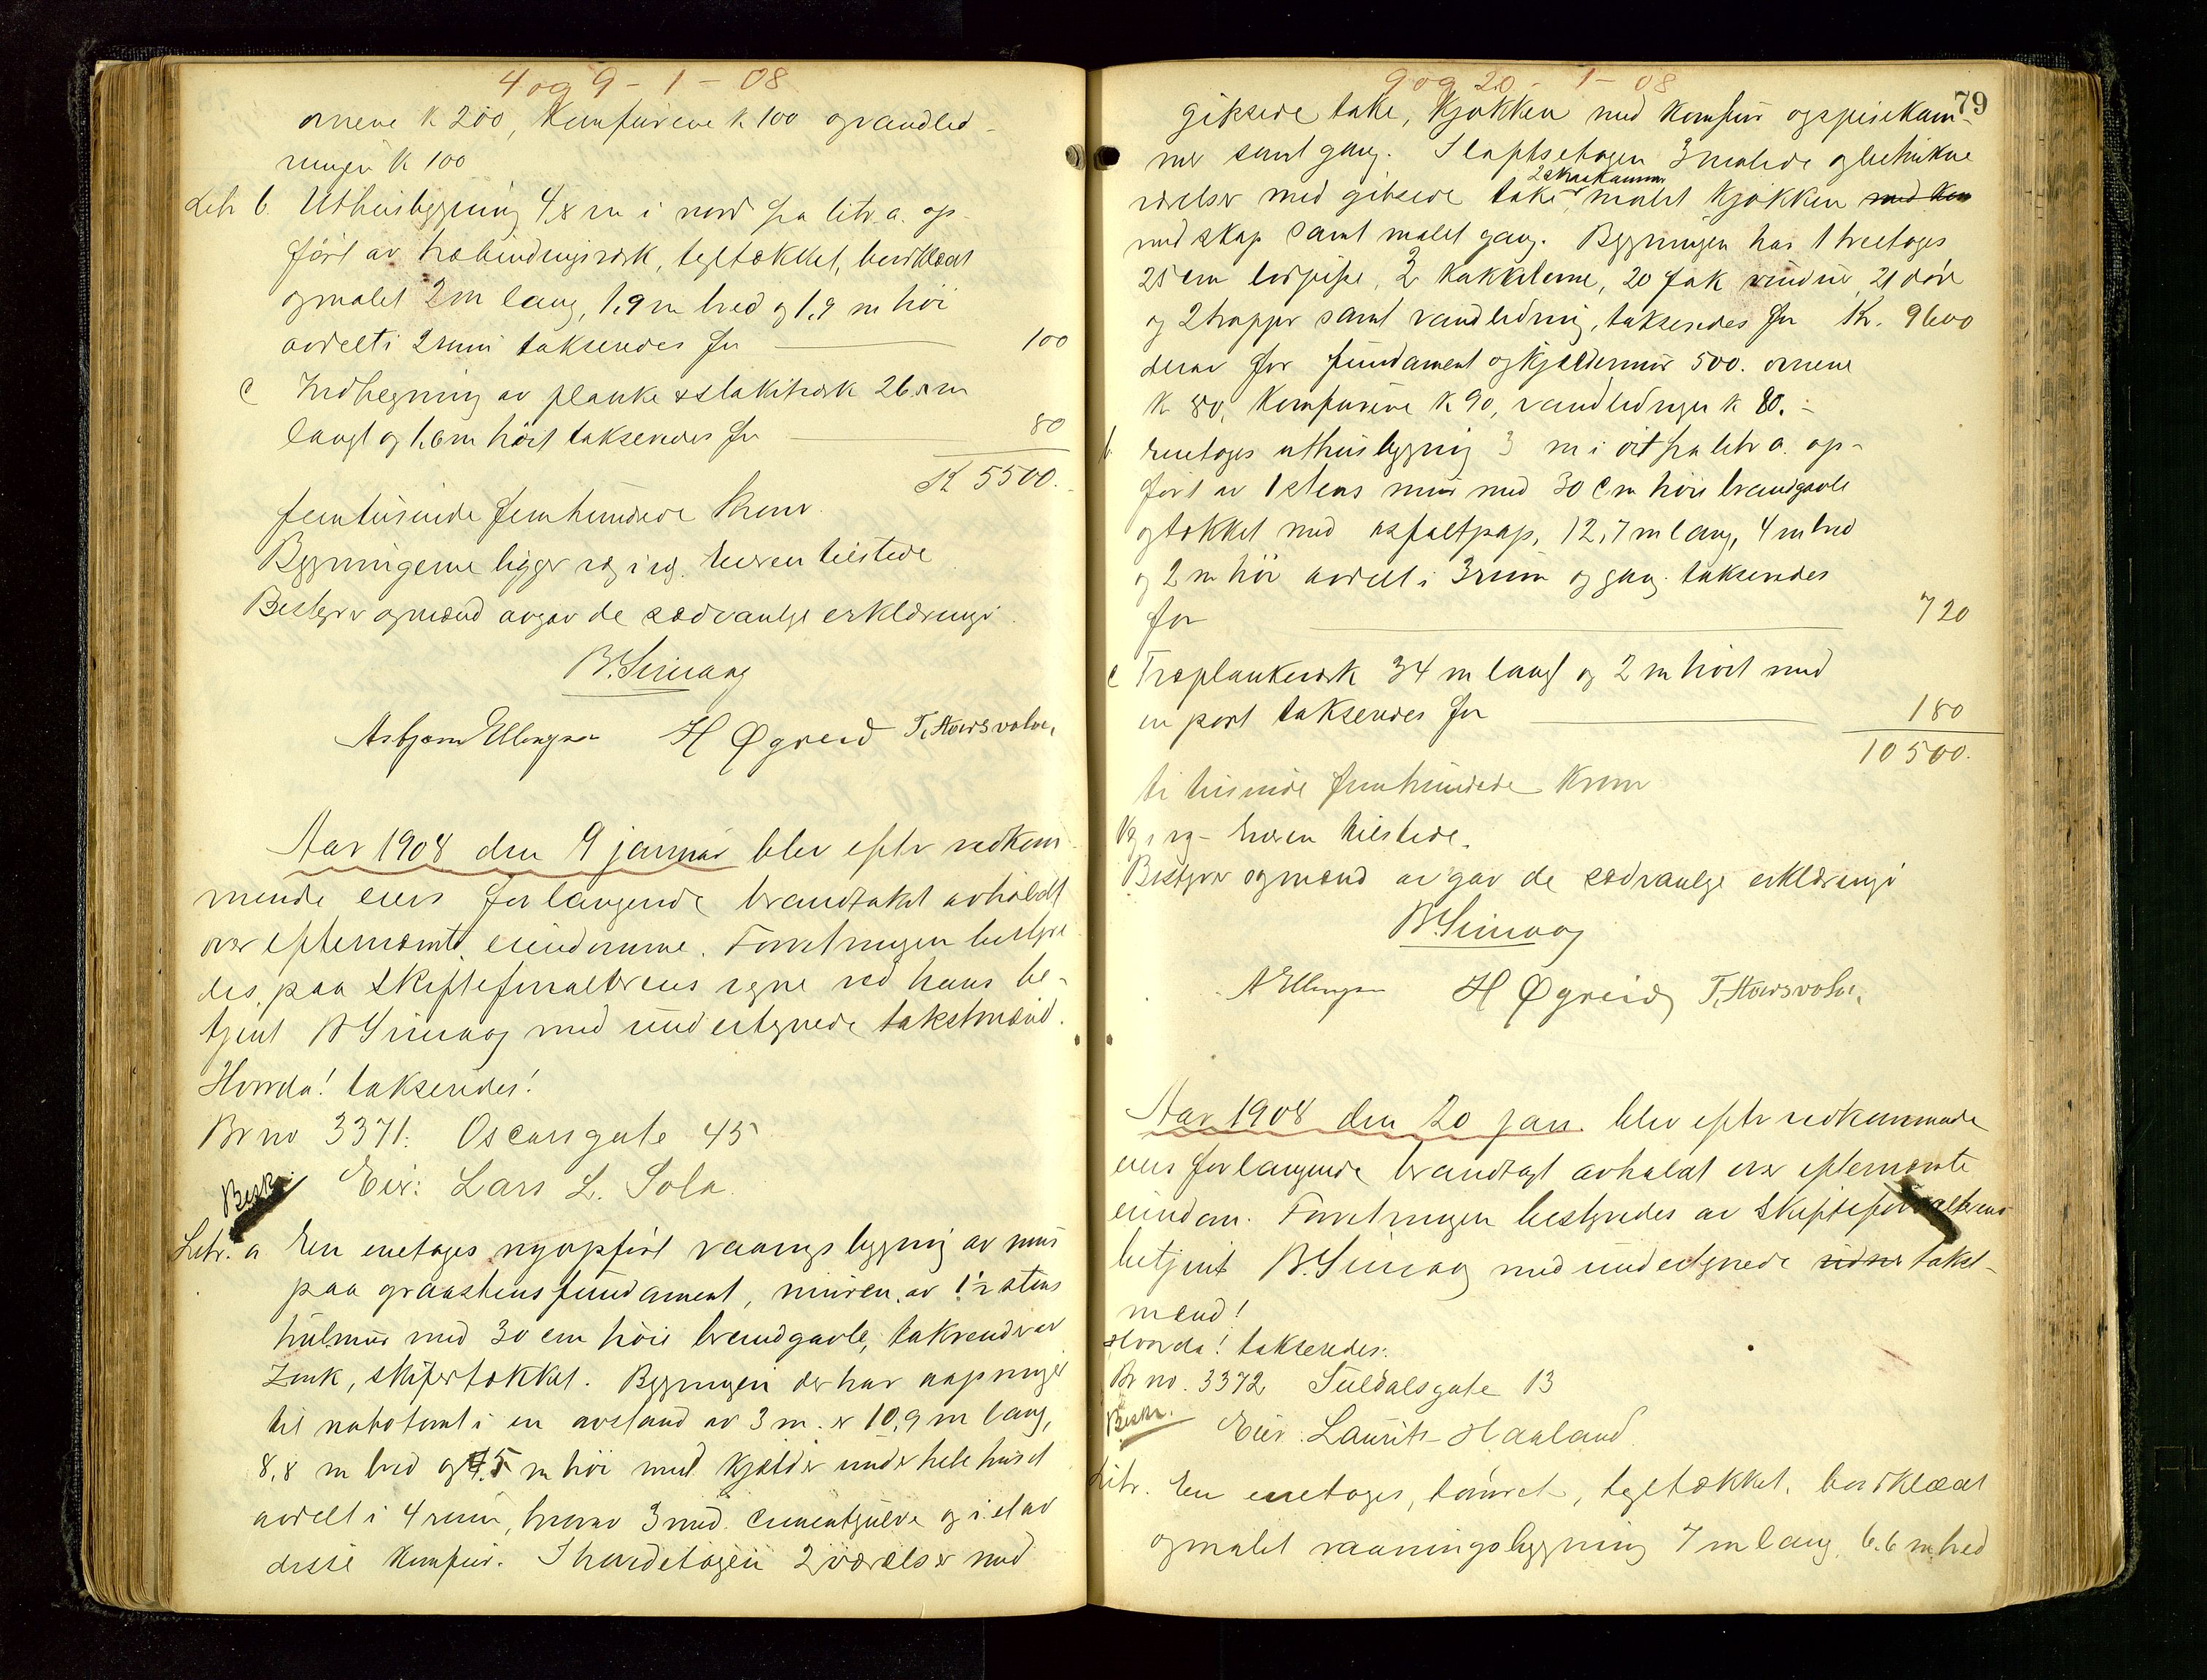 4 og 9 - 1 - 08
ovnene k 200, Komfurene k 100 og vandled-
ningen k 100
Litr b. Uthusbygning 4,8 m i nord fra litr a. op-
ført av træbindingsverk, tegltækket, bordklædt
og malet 2 m lang, 1,9 m bred og 1,9 m høi
avdelt i 2 rum taksendes for 100
c Indhegning av planke & stakitverk 26 m
langt og 1,6 m høit taksendes for 80
K 5500.
femtusinde femhundrede Kroner.
Bygningerne ligger reg. i rg. Eieren tilstede
Bestyrer og mænd avgav de sædvanlge erklæringer.
B. Simaag
Asbjørn Ellingsen H Øgreid T. Haarsvolve,
Aar 1908 den 9 januar blev efter vedkom-
mende eiers forlangende brandtakst avholdt
over efternævnte eiendomme. Forretningen bestyre-
des paa Skifteforvalterens vegne ved hans be-
tjent B Simaag med undertegnede takstmænd.
Hvorda! taksendes!
Br no 3371. Oscarsgate 45
Beskr. Eier: Lars L. Sola.
Litr. a En enetages nyopført vaaningsbygning av mur
paa graastensfundament, muren av 1½ stens
hulmur med 30 cm høie brandgavle, takrender av
Zink, skifertækket. Bygningen der har aapninger
til nabotomt i en avstand av 3 m. er 10,9 m lang,
8,8 m bred og 5 m høi med kjælder under hele huset
avdelt i 4 rum, hvorav 3 med cementgulve og i et av
disse komfur. I hovedetagen 2 værelser med
9 og 20 - 1 - 08
79
gipsede take, Kjøkken med Komfur og spisekam-
mer samt gang. I loftsetagen 3 malede og betrukne
2 skraakammer
værelser med gibsede take, malet kjøkken med kom
med skap samt malet gang. Bygningen har 1 treetages
25 cm løspipe, 2 kakkelovne, 20 fak vinduer, 21 døre
og 2 trapper samt vandledning, taksendes for Kr. 9600
derav for fundament og kjældermur 500. ovnene
k 80, Komfurene k 90, vandledningen k 80.-
b Enetages uthusbygning 3 m i øst fra litr a. op-
ført av 1 stens mur med 30 cm høie brandgavle
og tækket med asfaltpap, 12,7 m lang, 4 m bred
og 2 m høi avdelt i 3 rum og gang. taksendes
for 720
c Træplankeverk 34 m langt og 2 m høit med
en port taksendes for 180
10500.
ti tusinde femhundrede Kroner
Rg i rg - Eieren tilstede.
Bestyrer og mænd avgav de sædvanlge erklæringer
B. Simaag
A Ellingsen H Øgreid T. Haarsvolve,
Aar 1908 den 20 jan. blev efter vedkommende
eiers forlangende brandtagt avholdt over efternævnte
eiendom. Forretningen bestyredes av Skifteforvalterens
betjent B. Simaag med undertegnede takst-
mænd!
Hvorda! taksendes:
Br no. 3372 Suldalsgate 13
Beskr. Eier: Laurits Haaland.
Litr. En enetages, tømret, tegltækket, bordklædt
og malet vaaningsbygning 7 m lang, 6.6 m bred